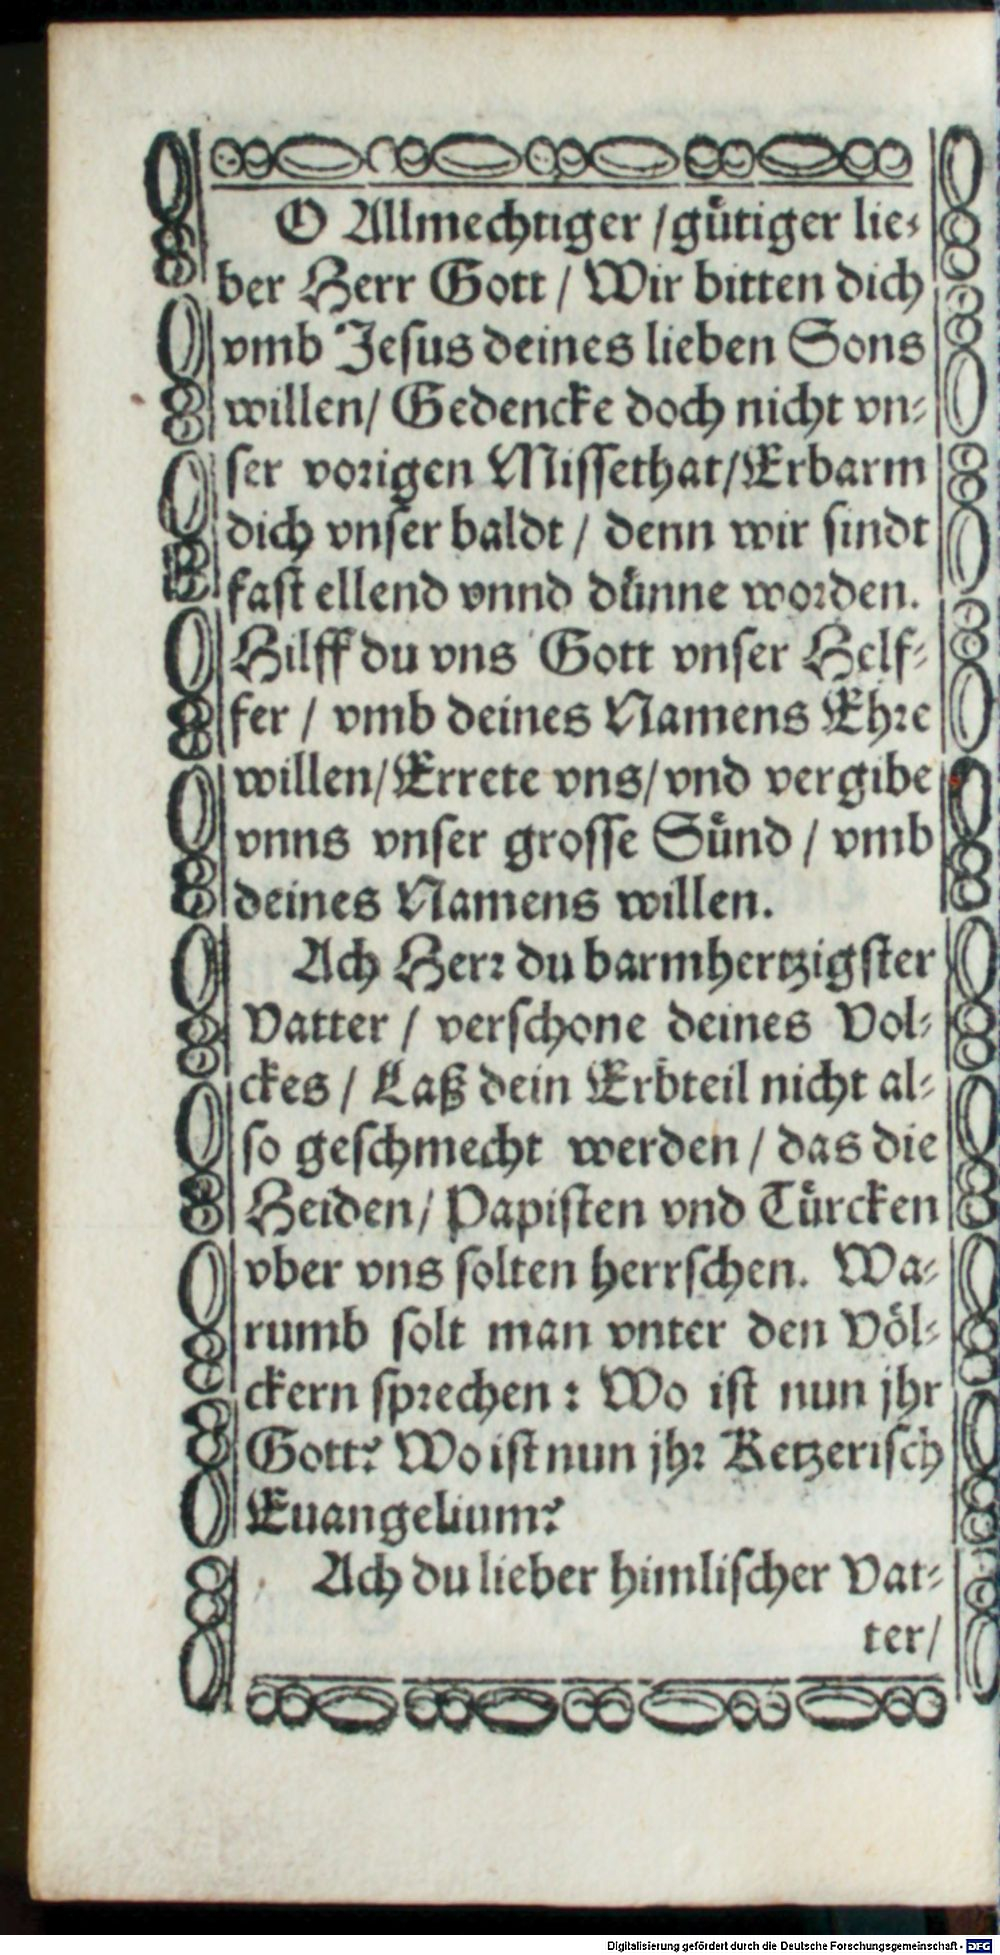 O Allmechtiger / gütiger lie-
ber Herr Gott / Wir bitten dich
vmb Jesus deines lieben Sons
willen / Gedencke doch nicht vn-
ser vorigen Missethat / Erbarm
dich vnser baldt / denn wir sindt
fast ellend vnnd dünne worden.
Hilff du vns Gott vnser Helf-
fer / vmb deines Namens Ehre
willen / Errete vns / vnd vergibe
vnns vnser grosse Sünd / vmb
deines Namens willen.
Ach Herr du barmhertzigster
Vatter / verschone deines Vol-
ckes / Laß dein Erbteil nicht al-
so geschmecht werden / das die
Heiden / Papisten vnd Türcken
vber vns solten herrschen. Wa-
rumb solt man vnter den Völ-
ckern sprechen : Wo ist nun jhr
Gott? Wo ist nun jhr Ketzerisch
Euangelium?
Ach du lieber himlischer Vat-
ter /
Digitalisierung gefördert durch die Deutsche Forschungsgemeinschaft - DFG